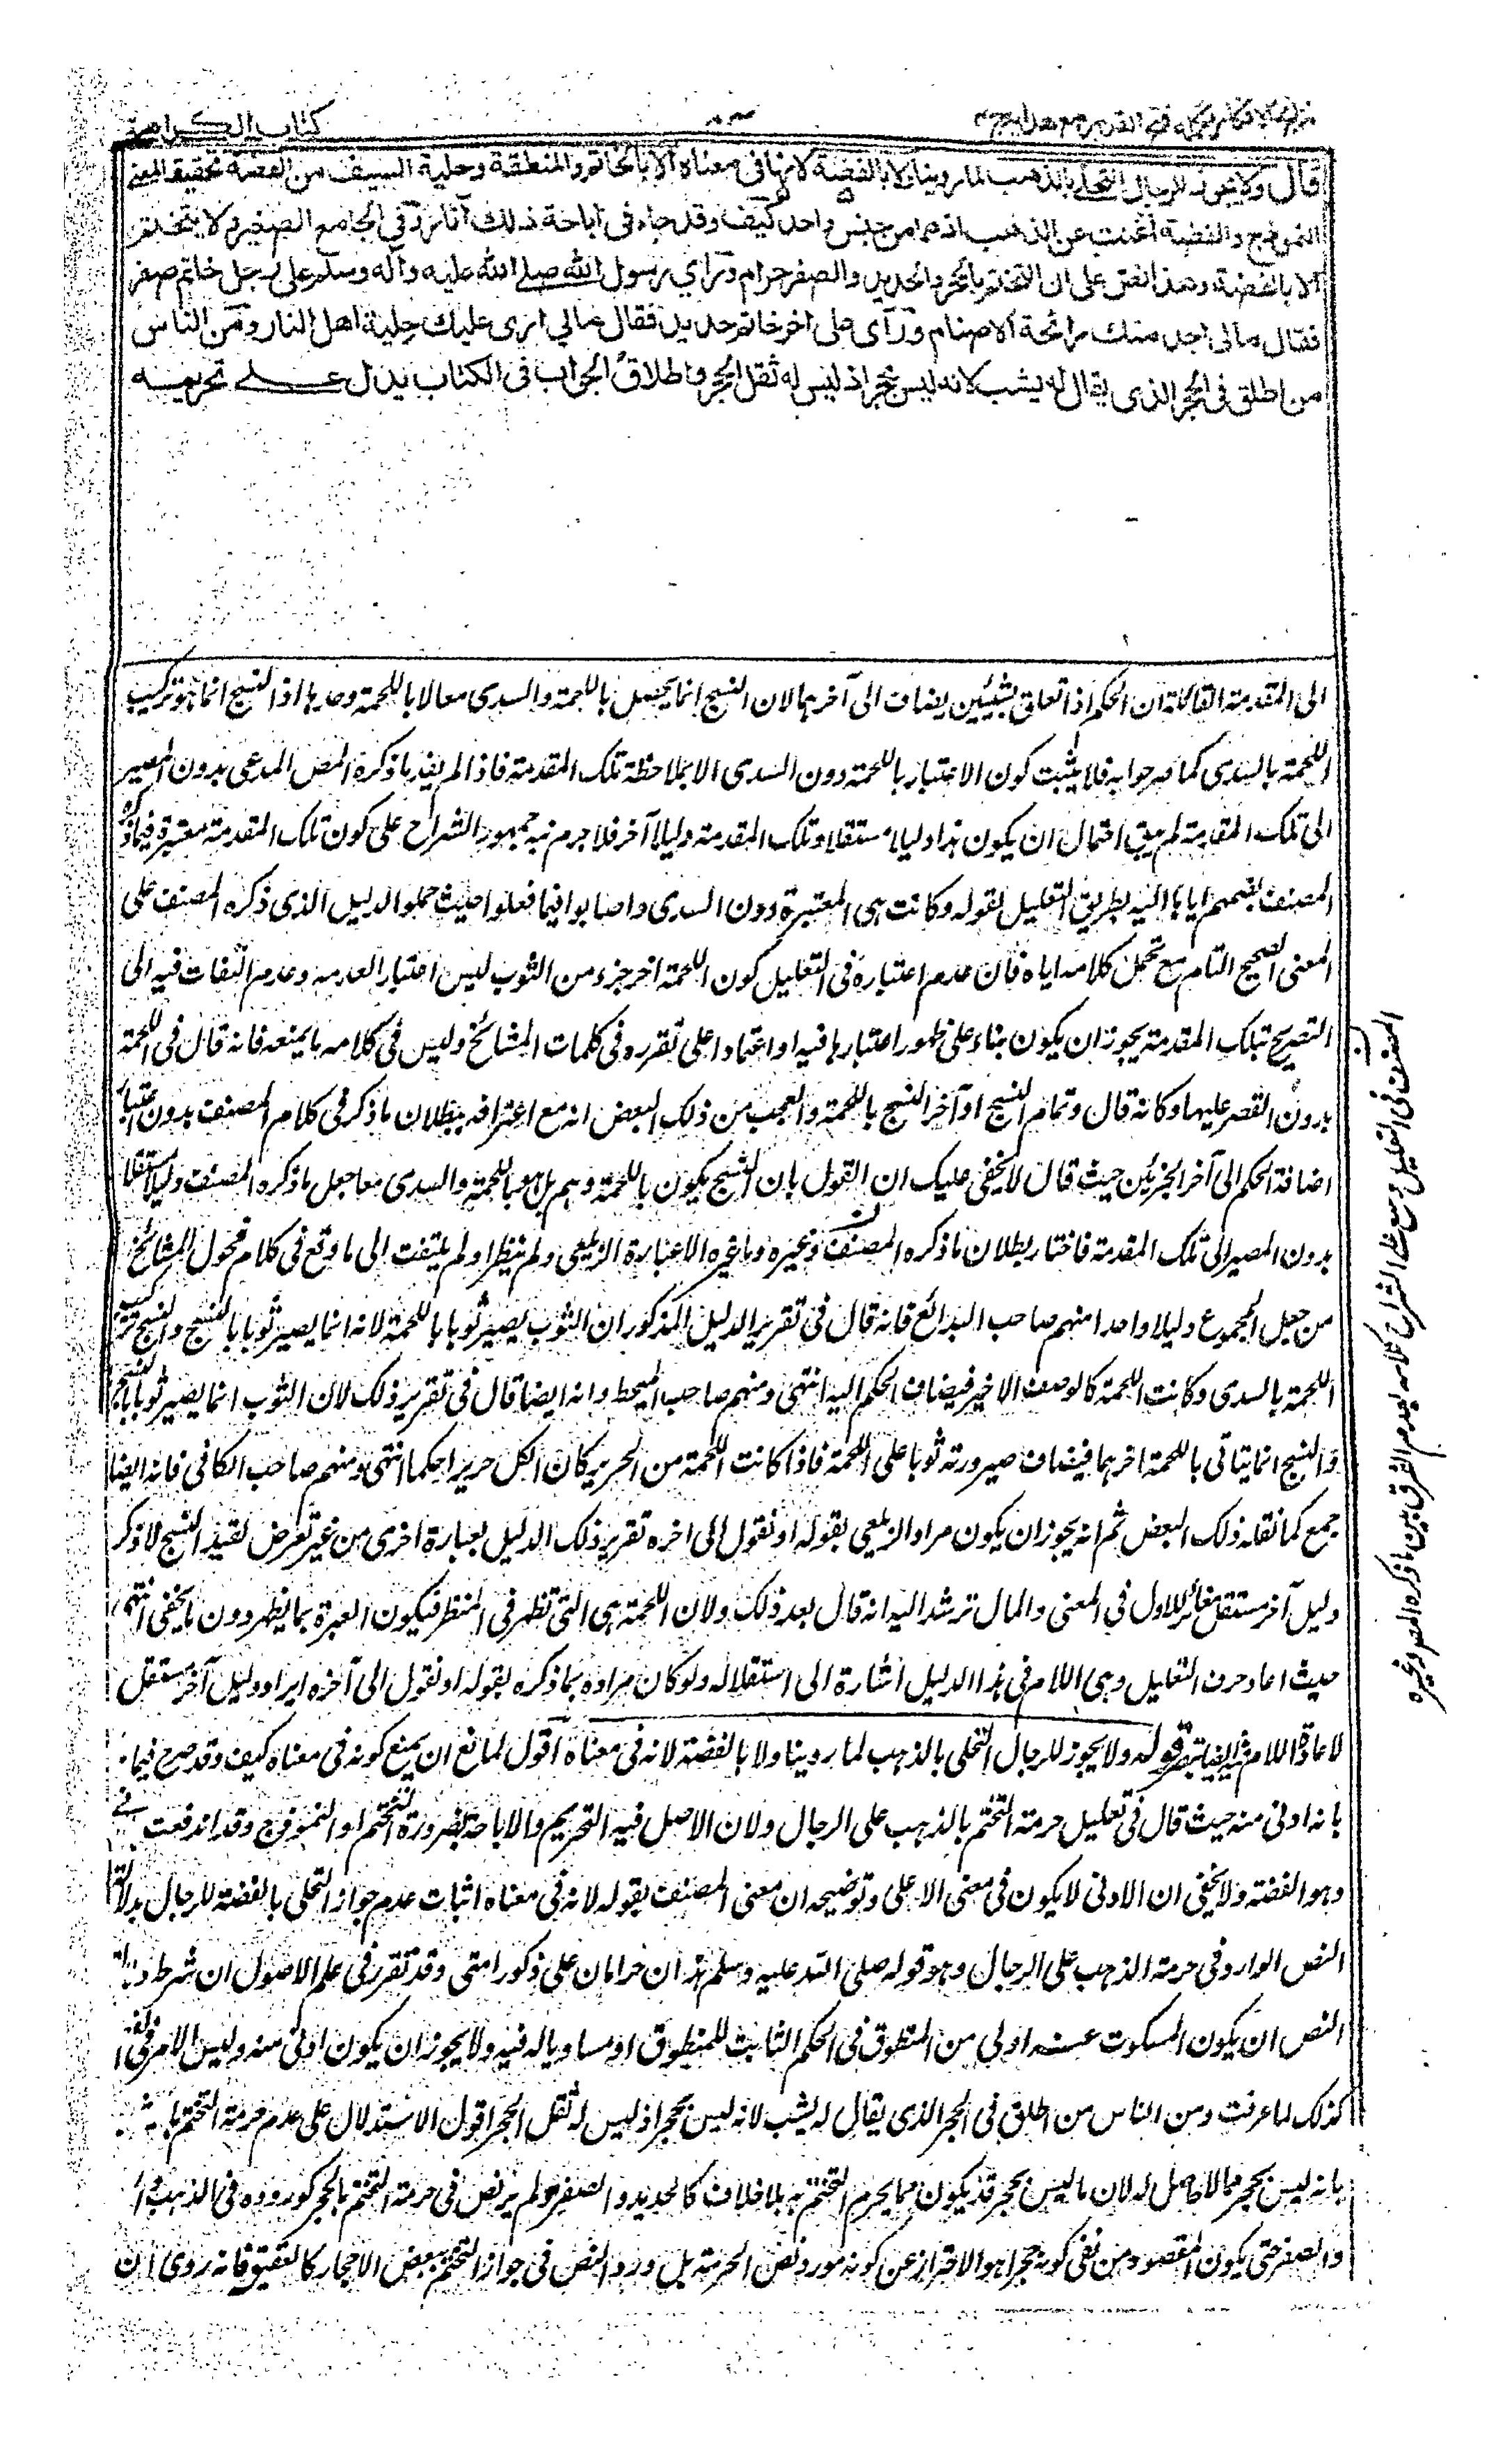 كتاب الكراهية
قال ولا يجوز للرجال التحلي بالذهب لما روينا ولا بالفضة لانها في معناه الا بالخاتم والمنطقة وحلية السيف من الفضة تحقيقا لمعنى
النموذج والفضة اغنت عن الذهب اذ هما من جنس واحد كيف وقد جاء في اباحة ذلك آثار وفي الجامع الصغير ولا يتختم
الا بالفضة وهذا نص على ان التختم بالحجر والحديد والصفر حرام ورأى رسول الله صلى الله عليه وآله وسلم على رجل خاتم صفر
فقال مالي اجد منك رائحة الاصنام ورآى على اخر خاتم حديد فقال مالي ارى عليك حلية اهل النار ومن الناس
من اطلق في الحجر الذي يقال له يشب لانه ليس بحجر اذ ليس له ثقل الحجر واطلاق الجواب في الكتاب يدل على تحريمه
الى المقدمة القائلة ان الحكم اذا تعلق بشيئين يضاف الى آخرهما لان النسج انما يحصل باللحمة والسدى معا لا باللحمة وحدها اذ النسج انما هو تركيب
اللحمة بالسدى كما صرحوا به فلا يثبت كون الاعتبار باللحمة دون السدى الا بملاحظة تلك المقدمة فاذا لم يفد ما ذكره المص المدعى بدون المصير
الى تلك المقدمة لم يبق احتمال ان يكون هذا دليلا مستقلا وتلك المقدمة دليلا آخر فلا جرم نبه جمهور الشراح على كون تلك المقدمة معتبرة فيما ذكره
المصنف بضمهم اياها اليه بطريق التعليل لقوله وكانت هي المعتبرة دون السدى واصابوا فيما فعلوا حيث حملوا الدليل الذي ذكره المصنف على
المعنى الصحيح التام مع تحمل كلامه اياه فان عدم اعتباره في التعليل كون اللحمة اخر جزء من الثوب ليس اعتبار العدمه وعدم التفات فيه الى
التصريح بتلك المقدمة يجوز ان يكون بناء على ظهور اعتبارها فيه او اعتمادا على تقرره في كلمات المشائخ وليس في كلامه ما يمنعه فانه قال في اللحمة
بدون القصر عليها وكانه قال وتمام النسج او آخر النسج باللحمة والعجب من ذلك البعض انه مع اعترافه ببطلان ما ذكر في كلام المصنف بدون اعتبار
اضافة الحكم الى آخر الجزئين حيث قال لا يخفى عليك ان القول بان النسج يكون باللحمة وهم بل هو باللحمة والسدى معا جعل ما ذكره المصنف دليلا مستقلا
بدون المصير الى تلك المقدمة فاختار بطلان ما ذكره المصنف وغيره وما غيره الا عبارة الزيلعي ولم ينظر او لم يلتفت الى ما وقع في كلام فحول المشائخ
من جعل المجموع دليلا واحدا منهم صاحب البدائع فانه قال في تقرير الدليل المذكور ان الثوب يصير ثوبا باللحمة لانه انما يصير ثوبا بالنسج والنسج تركيب
اللحمة بالسدى وكانت اللحمة كالوصف الاخير فيضاف الحكم اليه انتهى ومنهم صاحب المحيط وانه ايضا قال في تقرير ذلك لان الثوب انما يصير ثوبا بالنسج
والنسج انما يتاتى باللحمة اخرهما فيضاف صيرورته ثوبا على اللحمة فاذا كانت اللحمة من الحرير كان الكل حريرا حكما انتهى ومنهم صاحب الكافي فانه ايضا
جمع كما نقله ذلك البعض ثم انه يجوز ان يكون مراد الزيلعي بقوله او نقول الى اخره تقرير ذلك الدليل بعبارة اخرى من غير تعرض لقيد النسج لا ذكر
دليل آخر مستقل مغائر للاول في المعنى والمال ترشد اليه انه قال بعد ذلك ولان اللحمة هي التي تظهر في المنظر فيكون العبرة بما يظهر دون ما يخفى انتهى
حيث اعاد حرف التعليل وهي اللام في هذا الدليل اشارة الى استقلاله ولو كان مراده بما ذكره بقوله او نقول الى آخره ايراد دليل آخر مستقل
لاعاد اللام فيه ايضا تبصر قوله ولا يجوز للرجال التحلي بالذهب لما روينا ولا بالفضة لانه في معناه اقول لمانع ان يمنع كونه في معناه كيف وقد صرح فيما
بانه ادنى منه حيث قال في تعليل حرمة التختم بالذهب على الرجال ولان الاصل فيه التحريم والاباحة لضرورة التختم او النموذج وقد اندفعت
وهو الفضة ولا يخفى ان الادنى لا يكون في معنى الاعلى وتوضيحه ان معنى المصنف بقوله لانه في معناه اثبات عدم جواز التحلي بالفضة للرجال بدلالة
النص الوارد في حرمة الذهب على الرجال وهو قوله صلى الله عليه وسلم هذان حرامان على ذكور امتي وقد تقرر في علم الاصول ان شرط دلالة
النص ان يكون المسكوت عنه اولى من المنطوق في الحكم الثابت للمنطوق او مساويا له فيه ولا يجوز ان يكون ادنى منه وليس الامر في الفضة
كذلك لما عرفت ومن الناس من اطلق في الحجر الذي يقال له يشب لانه ليس بحجر اذ ليس له ثقل الحجر اقول الاستدلال على عدم حرمة التختم
بانه ليس بحجر مما لا حاصل له لان ما ليس بحجر قد يكون مما يحرم التختم به بلا خلاف كالحديد والصفر ولم يرد نص في حرمة التختم بالحجر كوروده في الذهب
والصفر حتى يكون المقصود من نفي كونه حجرا هو الاحتراز عن كونه مورد نص الحرمة بل ورد النص في جواز التختم ببعض الاحجار كالعقيق فانه روي ان
المصنف في التعليل ومع على الشراح كلامه لعدم الفرق بين ما ذكره المص وغيره